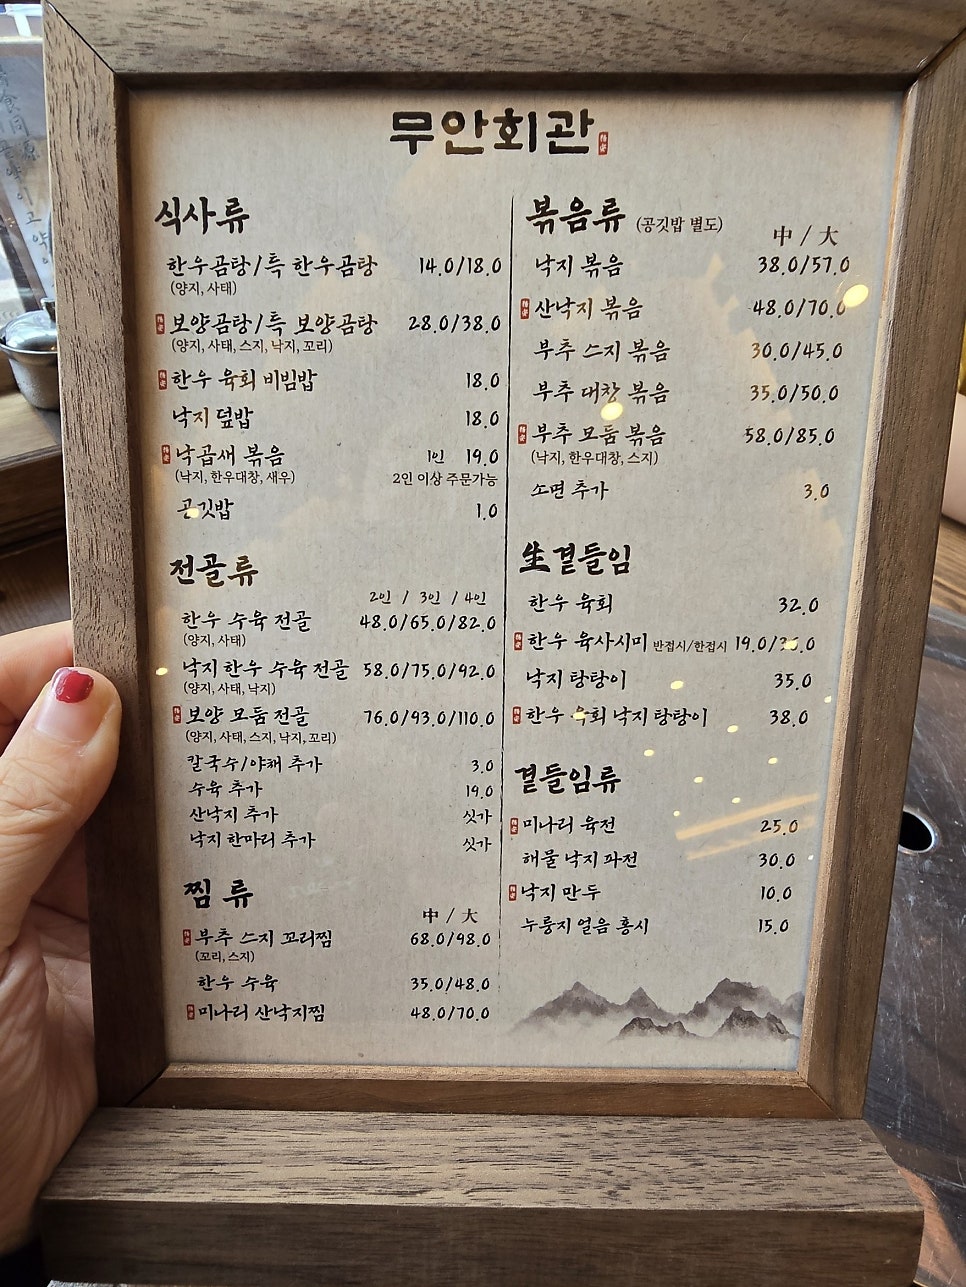 무안회관
식사류
한우곰탕/특 한우곰탕 14.0/18.0
(양지, 사태)
보양곰탕/특 보양곰탕 28.0/38.0
(양지, 사태, 스지, 낙지, 꼬리)
한우 육회 비빔밥 18.0
낙지 덮밥 18.0
낙곱새 볶음 1인 19.0
(낙지, 한우대창, 새우) 2인 이상 주문가능
공깃밥 1.0
전골류
2인 / 3인 / 4인
한우 수육 전골 48.0/65.0/82.0
(양지, 사태)
낙지 한우 수육 전골 58.0/75.0/92.0
(양지, 사태, 낙지)
보양 모둠 전골 76.0/93.0/110.0
(양지, 사태, 스지, 낙지, 꼬리)
칼국수/야채 추가 3.0
수육 추가 19.0
산낙지 추가 싯가
낙지 한마리 추가 싯가
찜류
中 / 大
부추 스지 꼬리찜 68.0/98.0
(꼬리, 스지)
한우 수육 35.0/48.0
미나리 산낙지찜 48.0/70.0
볶음류 (공깃밥 별도)
中 / 大
낙지 볶음 38.0/57.0
산낙지 볶음 48.0/70.0
부추 스지 볶음 30.0/45.0
부추 대창 볶음 35.0/50.0
부추 모둠 볶음 58.0/85.0
(낙지, 한우대창, 스지)
소면 추가 3.0
生곁들임
한우 육회 32.0
한우 육사시미 반접시/한접시 19.0/
낙지 탕탕이 35.0
한우 육회 낙지 탕탕이 38.0
곁들임류
미나리 육전 25.0
해물 낙지 파전 30.0
낙지 만두 10.0
누룽지 얼음 홍시 15.0